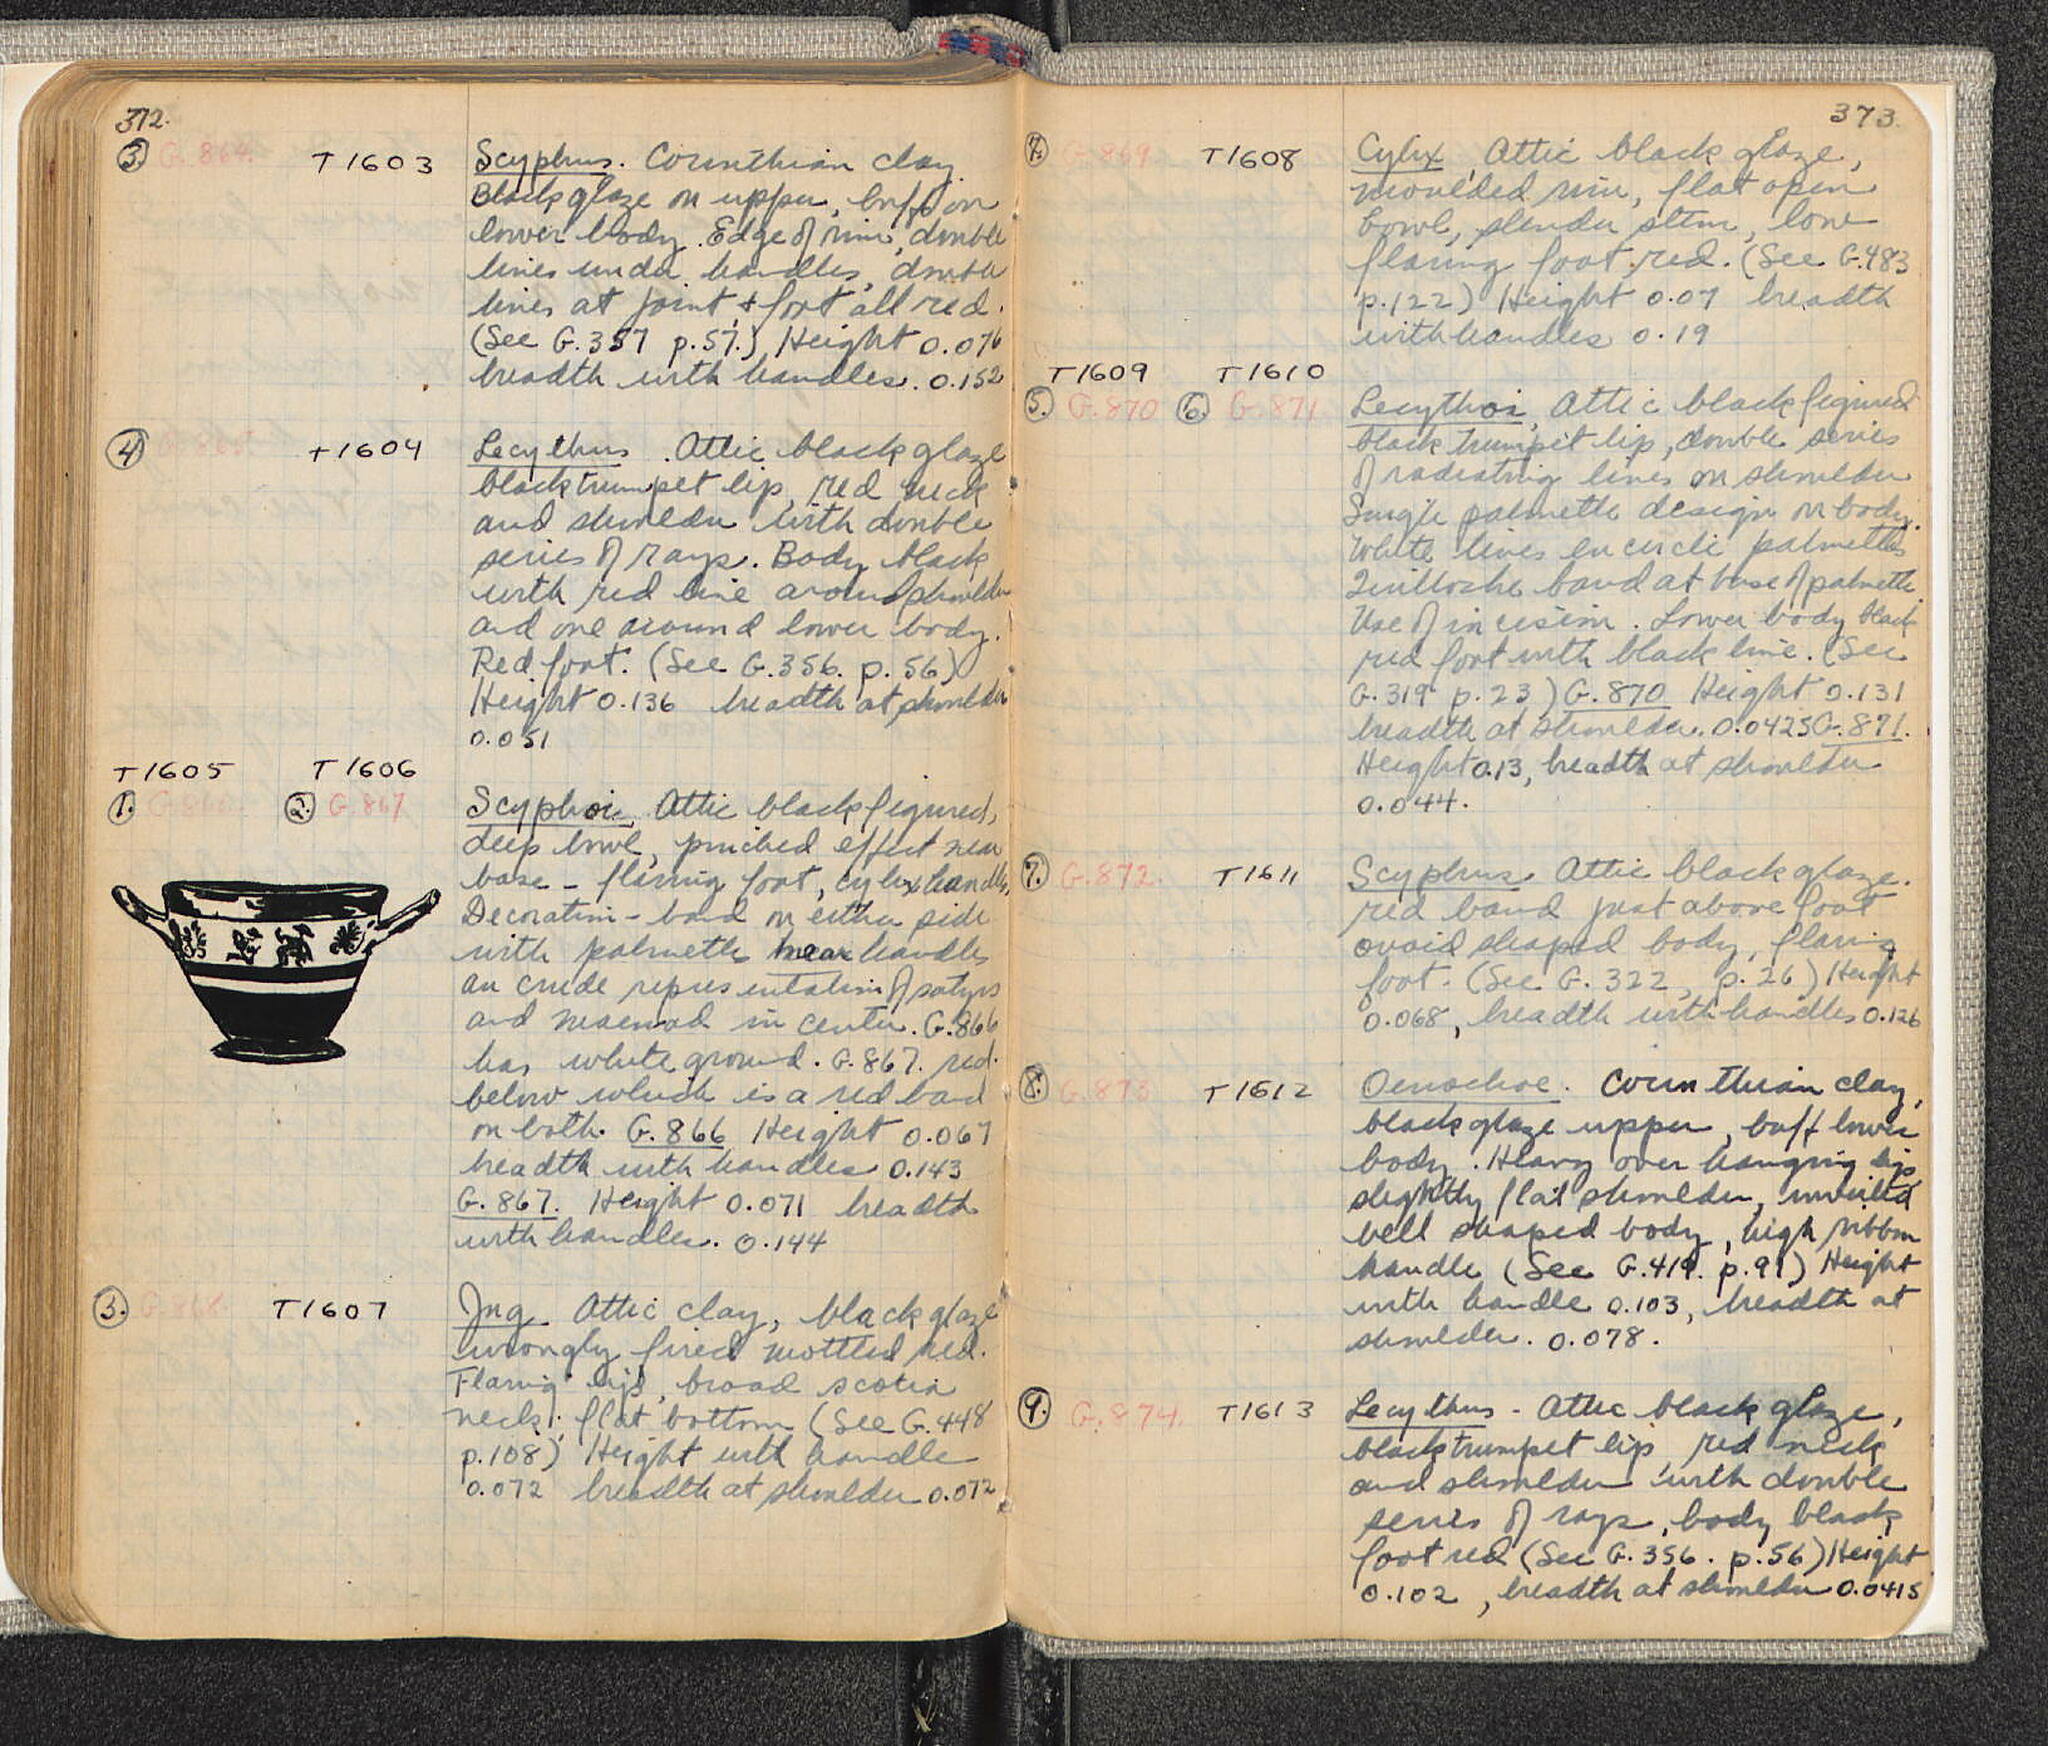 372.
3. G.864. T1603 Scyphus. Corinthian clay.
Black glaze on upper, buff on
lower body. Edge of rim, double
lines under handles, double
lines at joint + foot all red.
(See G.357 p.57.) Height 0.076
breadth with handles. 0.152
4. G.865 T1604 Lecythus. Attic black glaze
black trumpet lip, red neck
and shoulder with double
series of rays. Body black
with red line around shoulder
and one around lower body.
Red foot. (See G.356. p.56)
Height 0.136 breadth at shoulder
0.051
T1605 T1606
1. G.866. 2. G.867 Scyphoi, Attic black figured,
deep bowl, pinched effect near
base - flaring foot, cylix handles,
Decoration - band on either side
with palmette near handles
an crude representation of satyrs
and maenad in center. G.866
has white ground. G.867. red.
below which is a red band
on both. G.866 Height 0.067
breadth with handles 0.143
G.867. Height 0.071 breadth
with handles. 0.144
3. G.868. T1607 Jug. Attic clay, black glaze
wrongly fired mottled red.
Flaring lip, broad scotia
neck, flat bottom (See G.448
p.108) Height with handle
0.072 breadth at shoulder 0.072
373.
4. G.869 T1608 Cylix, Attic black glaze,
moulded rim, flat open
bowl, slender stem, low
flaring foot red. (See G.483
p.122) Height 0.07 breadth
with handles 0.19
T1609 T1610
5. G.870 6. G.871 Lecythoi, Attic black figured
black trumpet lip, double series
of radiating lines on shoulder
Single palmette design on body.
White lines encircle palmettes
Guilloche band at base of palmette.
Use of incision. Lower body black
red foot with black line. (See
G.319 p.23) G.870 Height 0.131
breadth at shoulder. 0.0425 G.871.
Height 0.13, breadth at shoulder
0.044.
7. G.872. T1611 Scyphus. Attic black glaze.
red band just above foot
ovoid shaped body, flaring
foot. (See G.322, p.26) Height
0.068, breadth with handles 0.126
8. G.873 T1612 Oenochoe. Corinthian clay,
black glaze upper, buff lower
body. Heavy over hanging lip
slightly flat shoulder, inverted
bell shaped body, high ribbon
handle (See G.419. p.91) Height
with handle 0.103, breadth at
shoulder. 0.078.
9. G.874. T1613 Lecythus - Attic black glaze,
black trumpet lip, red neck
and shoulder with double
series of rays, body black,
foot red (See G.356. p.56) Height
0.102, breadth at shoulder 0.0415